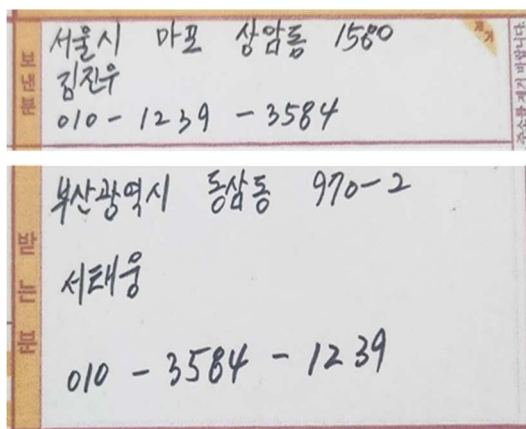 보낸분
서울시 마포 상암동 1580
김진우
010-1239-3584
받는분
부산광역시 동삼동 970-2
서태웅
010-3584-1239